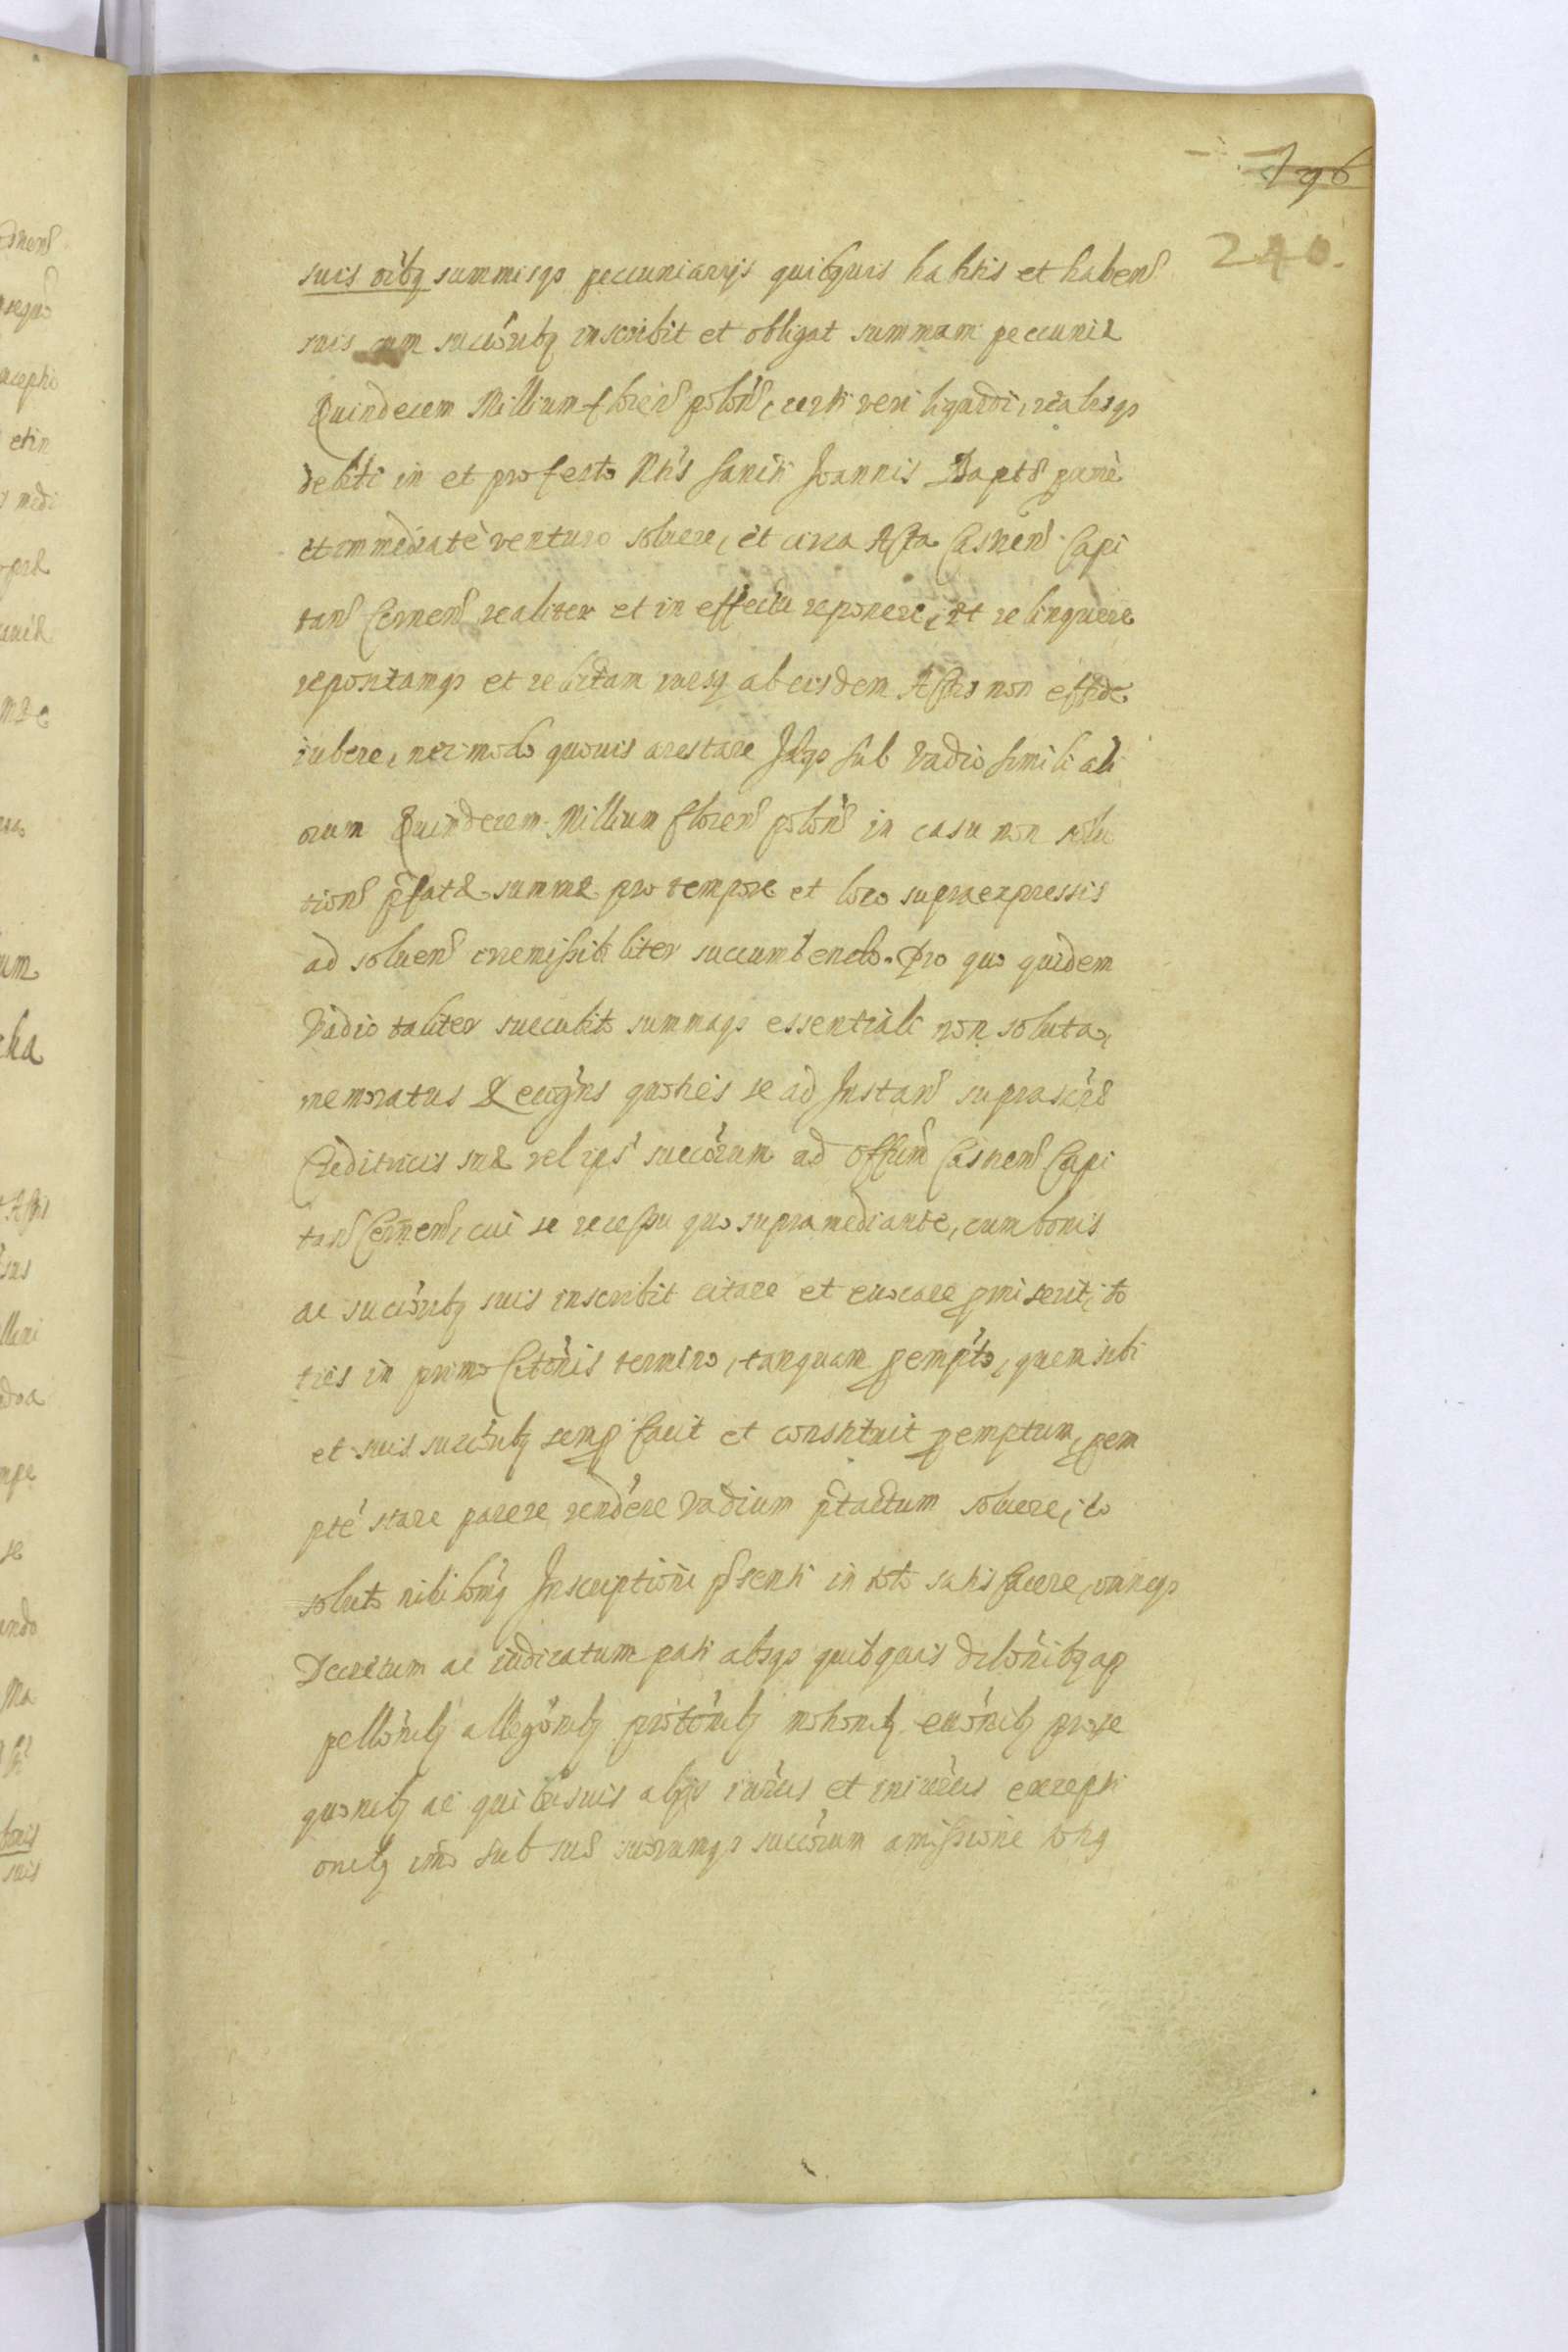 196
240.
suis oībq summisqe pecuniarijs quibquis habitis et habens
suis cum succōrībq inscribit et obligat summam pecuniæ
Quindecem Millium florens polōns, certi veri liquidi, realisqe
debiti in et pro festo Nti's Sancti Joannis Bapt's
et immediatè venturo soluere, et circa Acta Casnens Capi
tans Cernens realiter et in effectu reponere, et relinquere
repositamqe et relictam ab eisdem Actis non
iubere, nec modo quouis arestare Idqe sub Vadio simili ali
orum Quindecem Millium florens polōns in casu non solu
tions pfatæ summæ pro tempore et loco supraexpressis
ad soluens irremissibiliter succumbendo. Pro quo quidem
Vadio taliter succubito summaqe essentiali non soluta,
memoratus Recōgns quoties se ad Instans suprascrs
Creditricis suæ vel ips' succōrum ad Offīm Casnens Capi
tans Cernens, cui se recessu quo supra mediante, cum bonis
ac succōribq suis inscribit citare et euocare pmiserit, to
ties in primo Citōnis termino, tanquam pemp'to, quem sibi
et suis succōribq semp facit et constituit pemptum, pem
ptè stare parere rendēre Vadium ptactum soluere, eo
soluto nihilomq Inscriptioni psenti in toto satisfacere, omneqe
Decretum ac iudicatum pati absqe quibquis dilōnibq ap
pellōnibq allegōnibq protōnibq motionibq euōnibq prose
quonibq ac quibusuis alijs iuris et inirēcis excepti
onibq imò sub suæ suorumqe succōrum amissione